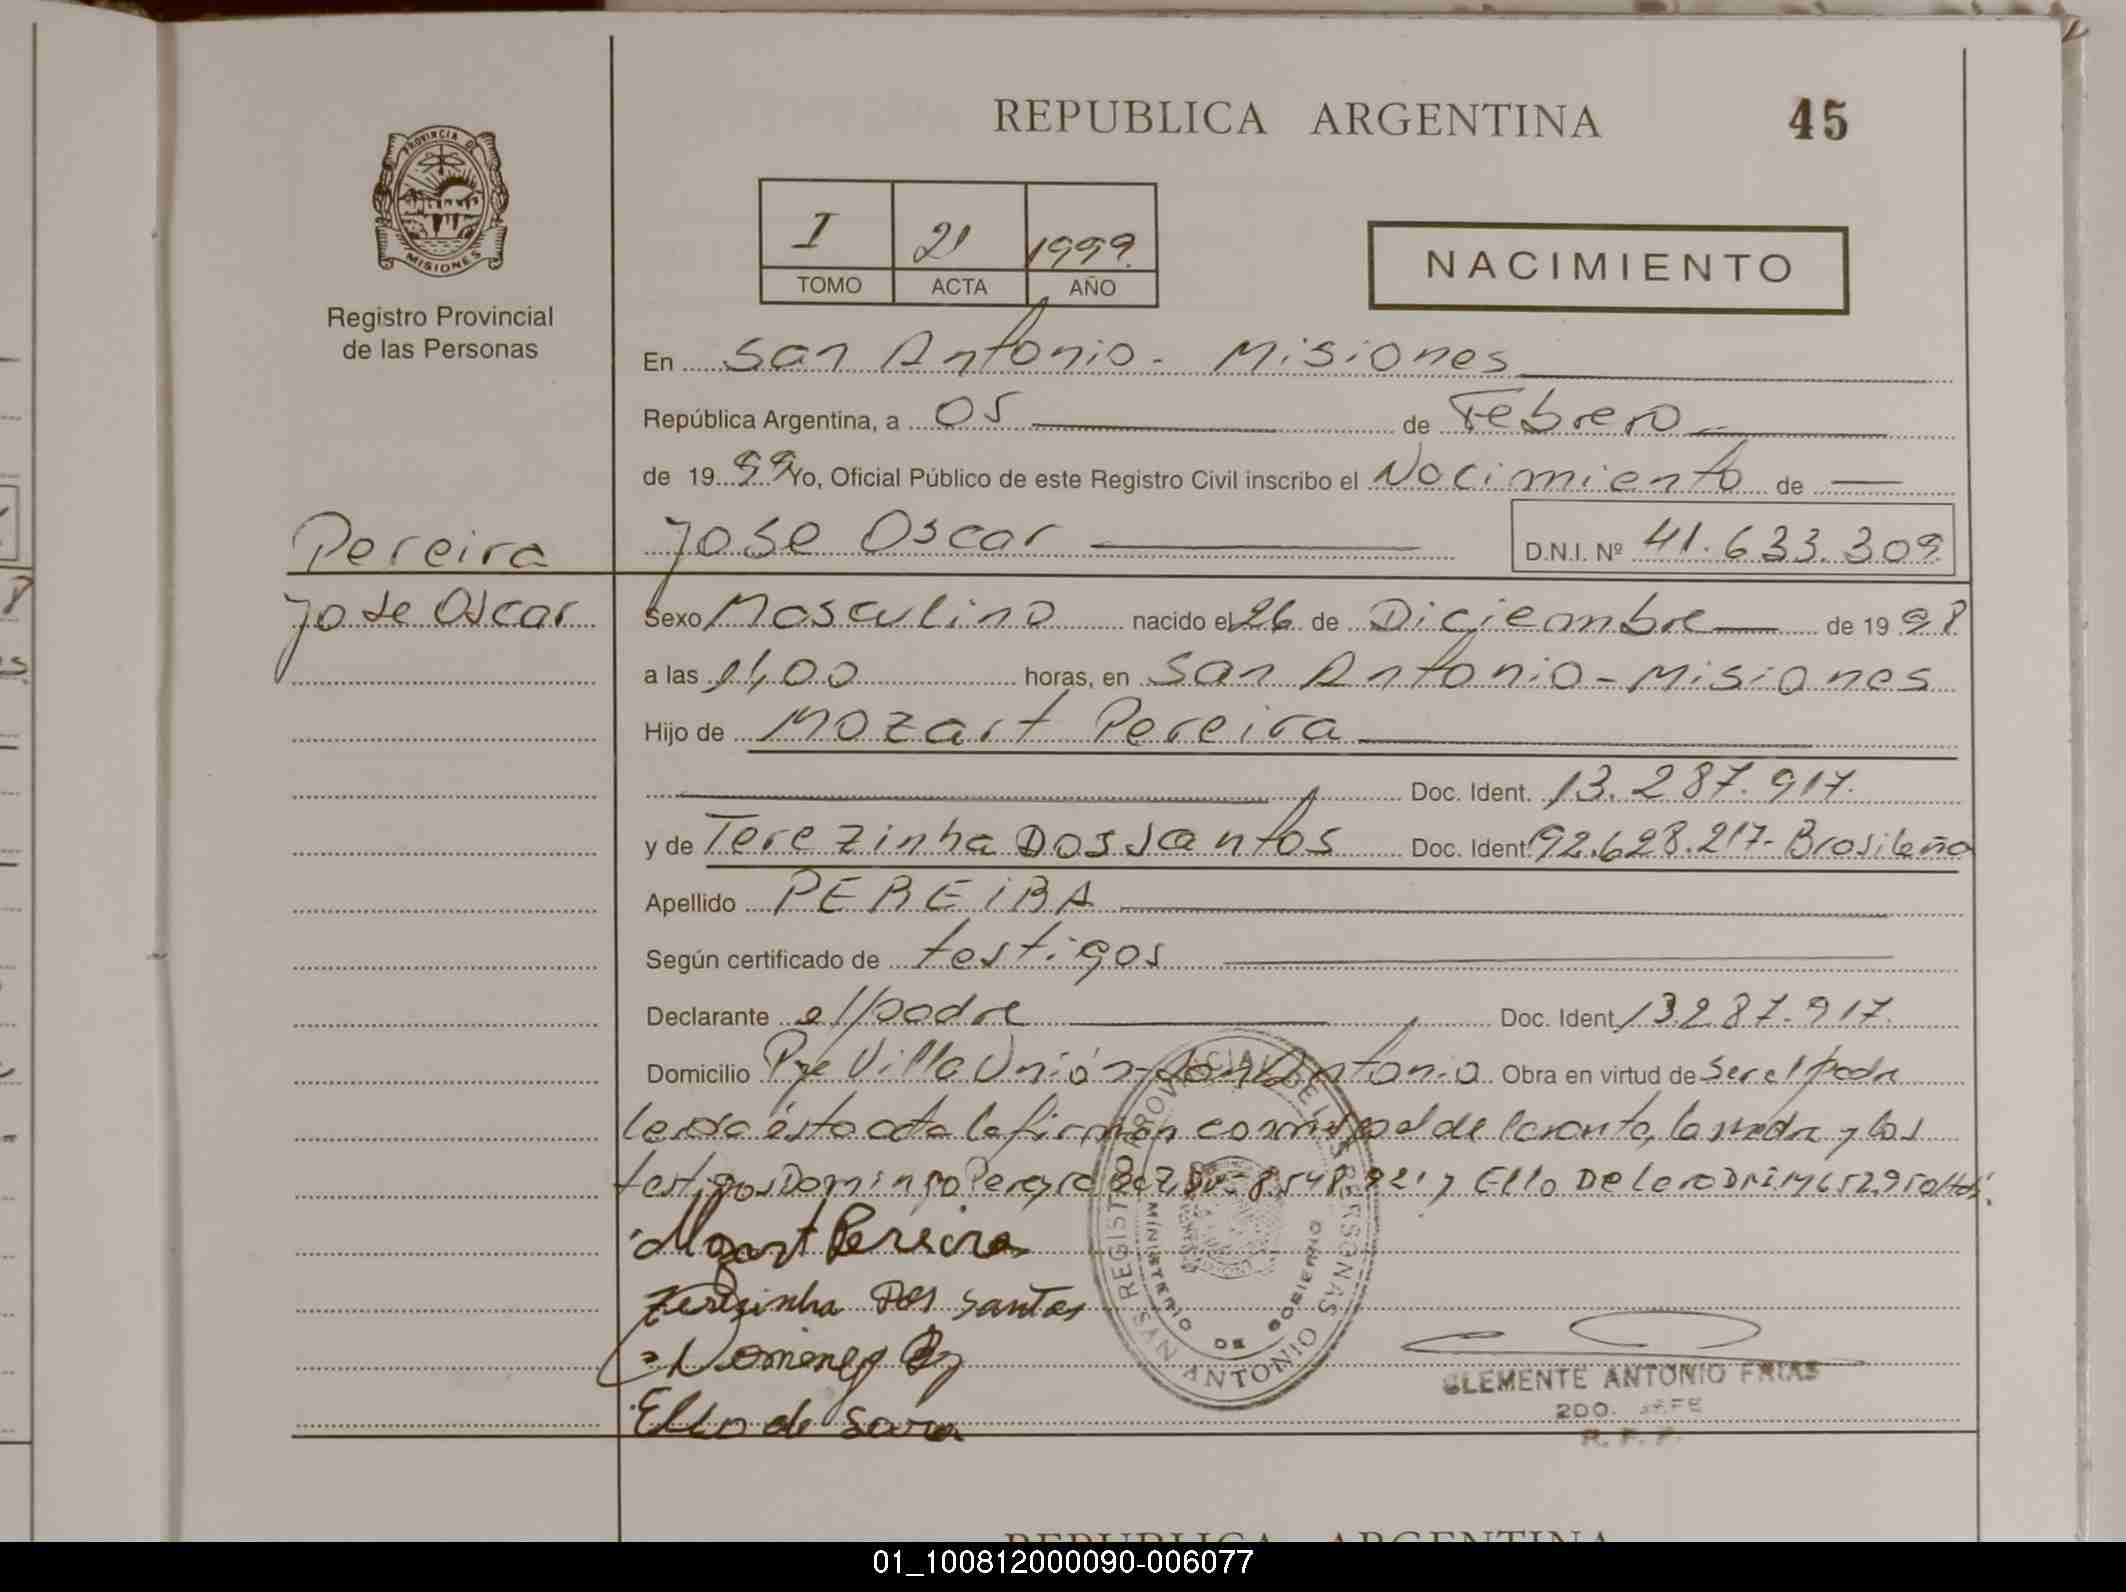 REPUBLICA ARGENTINA
45
PROVINCIA DE
MISIONES
Registro Provincial
de las Personas
I 21 1999
TOMO ACTA AÑO
NACIMIENTO
En San Antonio - Misiones
República Argentina, a 05 de Febrero
de 1999 Yo, Oficial Público de este Registro Civil inscribo el Nacimiento de
Pereira
Jose Oscar D.N.I. Nº 41.633.309
Jose Oscar
Sexo Masculino nacido el 26 de Diciembre de 1998
a las 11,00 horas, en San Antonio - Misiones
Hijo de Mozart Pereira
Doc. Ident. 13.287.917.
y de Terezinha Dos Santos Doc. Ident. 92.628.217- Brasileña
Apellido PEREIRA
Según certificado de testigos
Declarante el padre Doc. Ident. 13.287.917.
Domicilio Pje Villa Unión - San Antonio Obra en virtud de ser el padre
leida ésta acta la firman conmigo el declarante, la madre y los
testigos Domingo 8.548.921 y Elio De
Mozart Pereira
Terezinha Dos Santos
REGISTRO PROVINCIAL DE LAS PERSONAS
MINISTERIO DE GOBIERNO
ANTONIO
Elio de
CLEMENTE ANTONIO FRIAS
2DO. JEFE
R. P. P.
REPUBLICA ARGENTINA
01_100812000090-006077